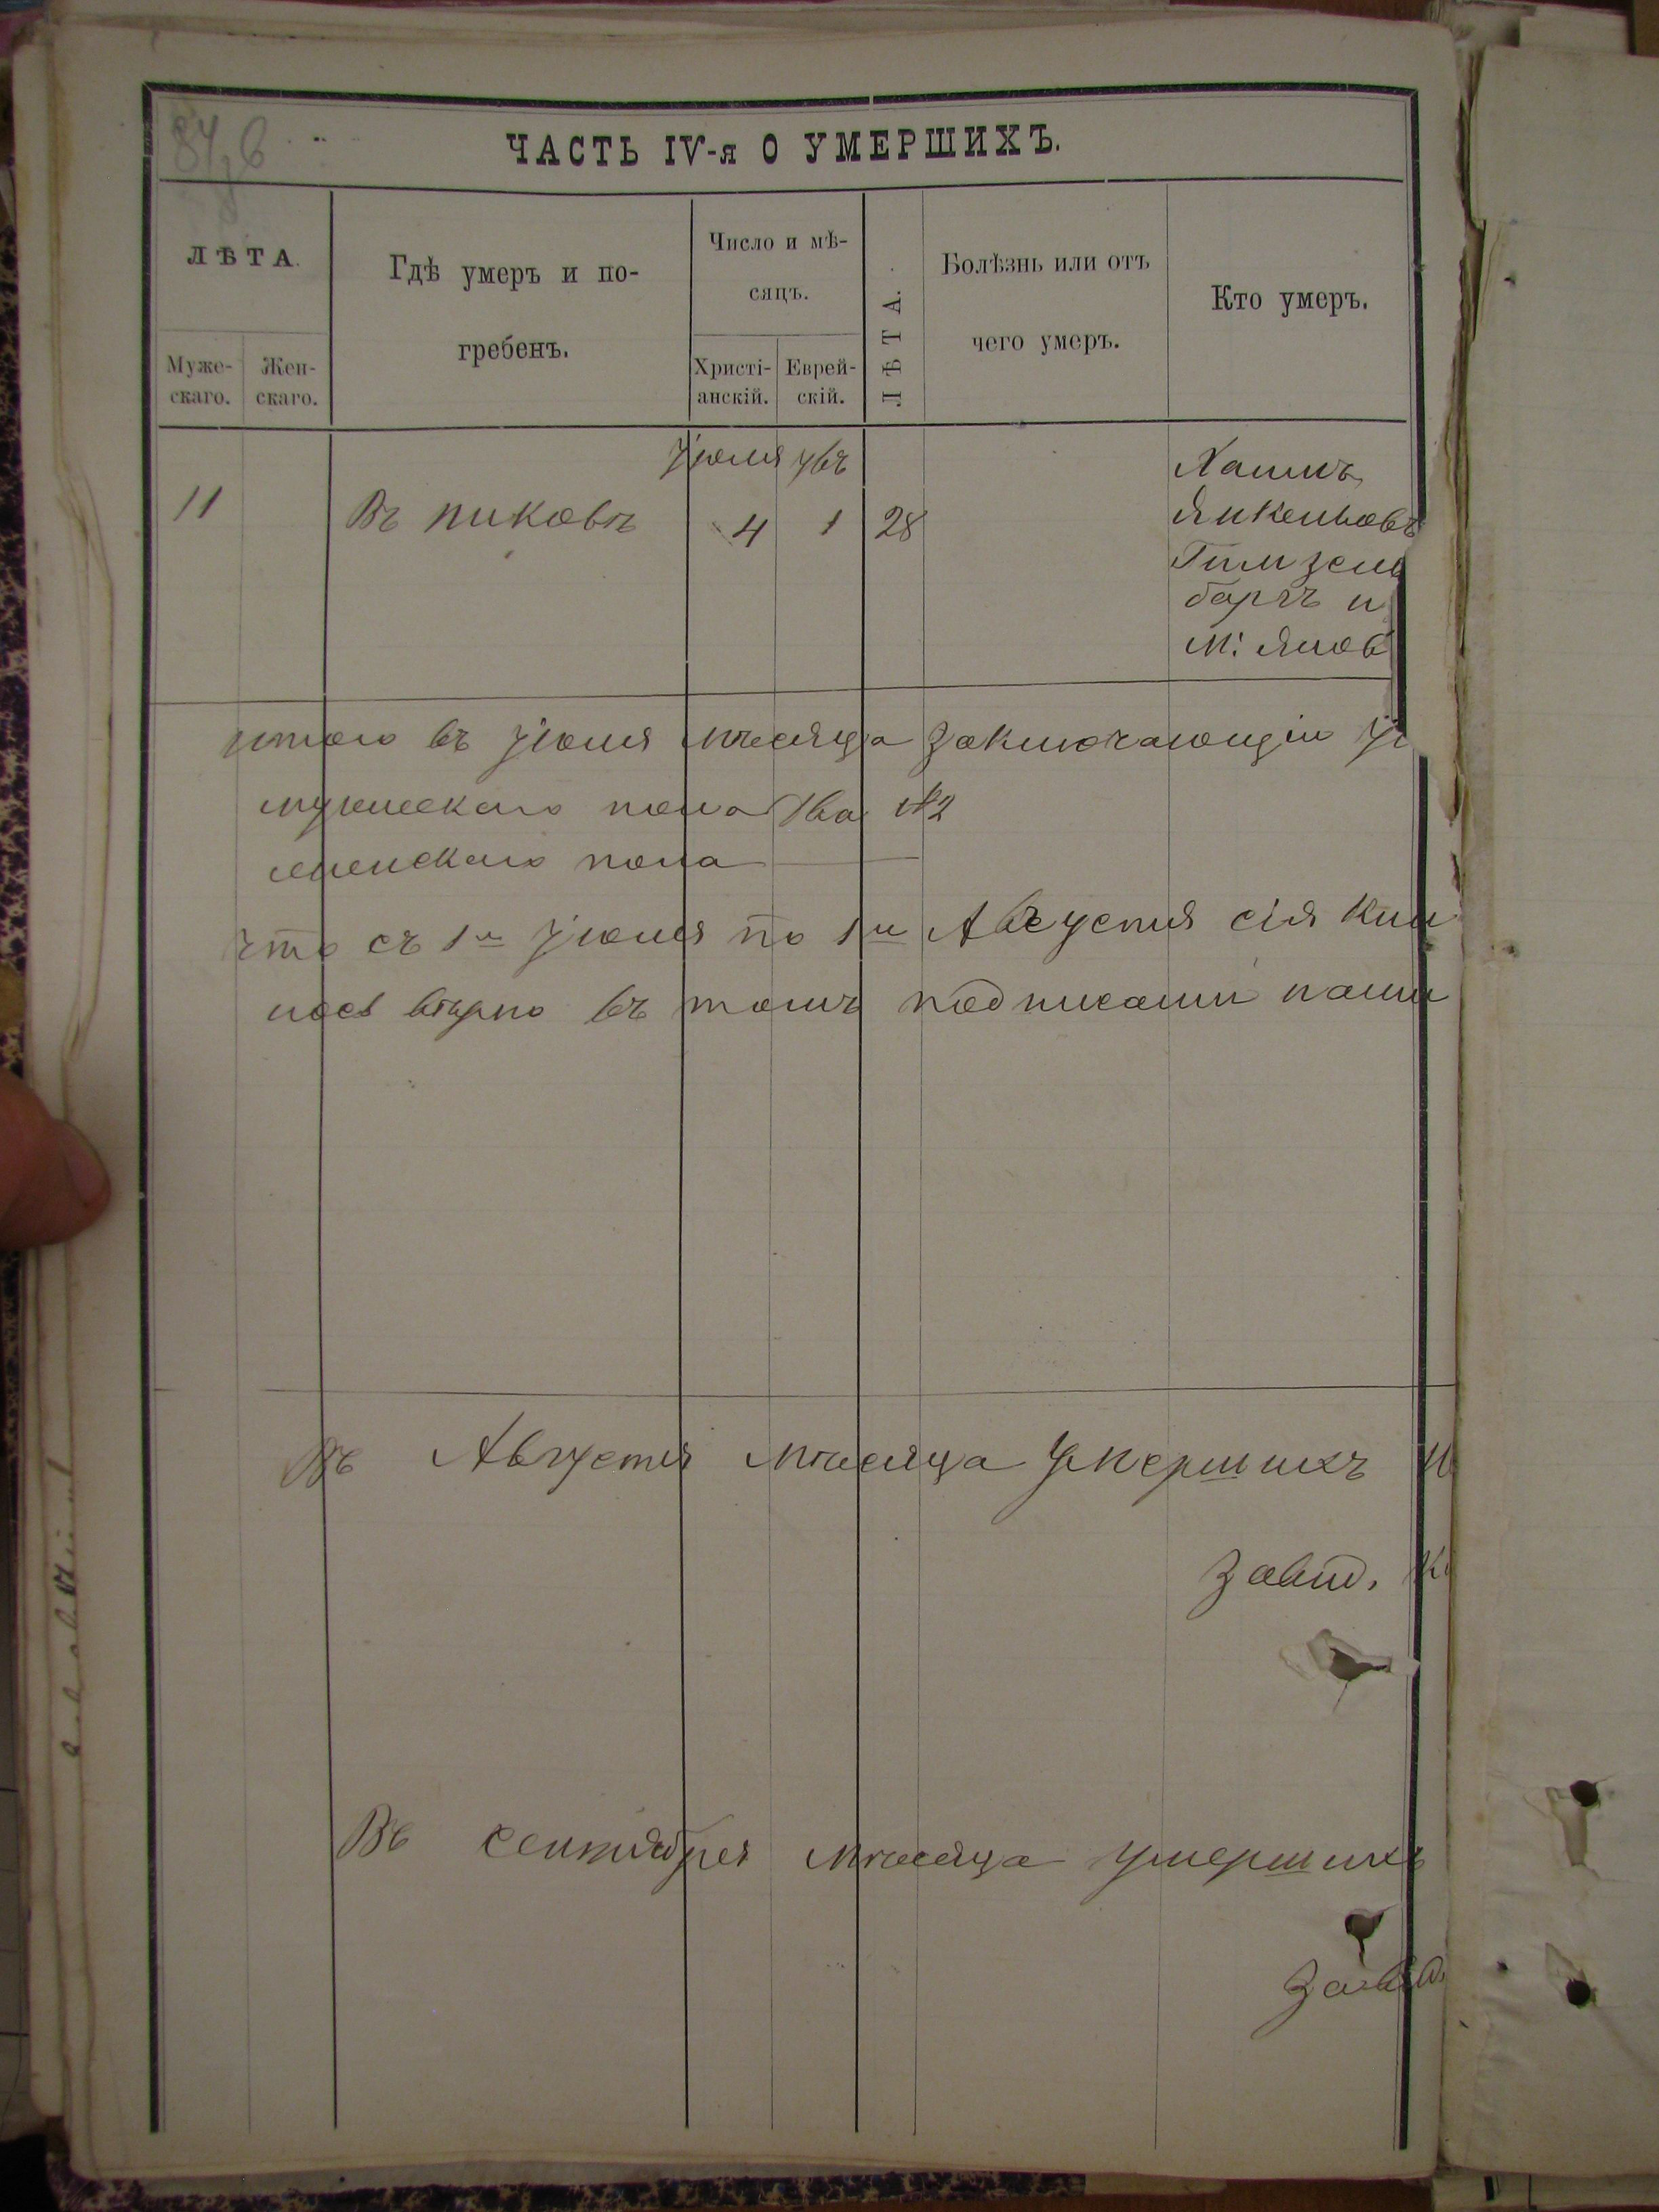 ЧАСТЬ IV-я О УМЕРШИХЪ.
ЛѢТА.
Муже-
скаго.
Жен-
скаго.
Гдѣ умеръ и по-
гребенъ.
Число и мѣ-
сяцъ.
Христі-
анскій.
Еврей-
скій.
ЛѢТА.
Болѣзнь или отъ
чего умеръ.
Кто умеръ.
Іюля
11
Въ пиковѣ
4
1
28
Хаимъ
Янкельовъ
баргъ и
м: Янов
итого въ Іюля мѣсяца
мужескаго пола два №2
женскаго пола
что съ 1го Іюля по 1го Августя сія Кни
вѣрно въ томъ подписами наши
Въ Августя мѣсяца Умершихъ
Завѣд.
Въ Сентября мѣсяца умершихъ
Завѣд.